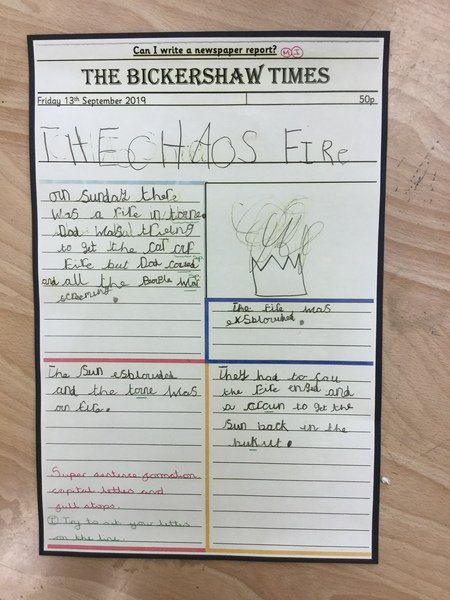 Can I write a newspaper report? M I
THE BICKERSHAW TIMES
Friday 13th September 2019 50p
THE CHAOS FIRe
on Sunday there
was a fire in torne.
Dad was trieing
to get the cat off
fire but Dad
and all the Peaple was
screming.
The fire was
exsblowded.
The Sun esblouded
and the torne was
on fire.
They had to cau
the fire ened and
a to get the
Sun back in the
bukut.
Super sentence formation
capital letters and
full stops.
I Try to sit your letters
on the line.